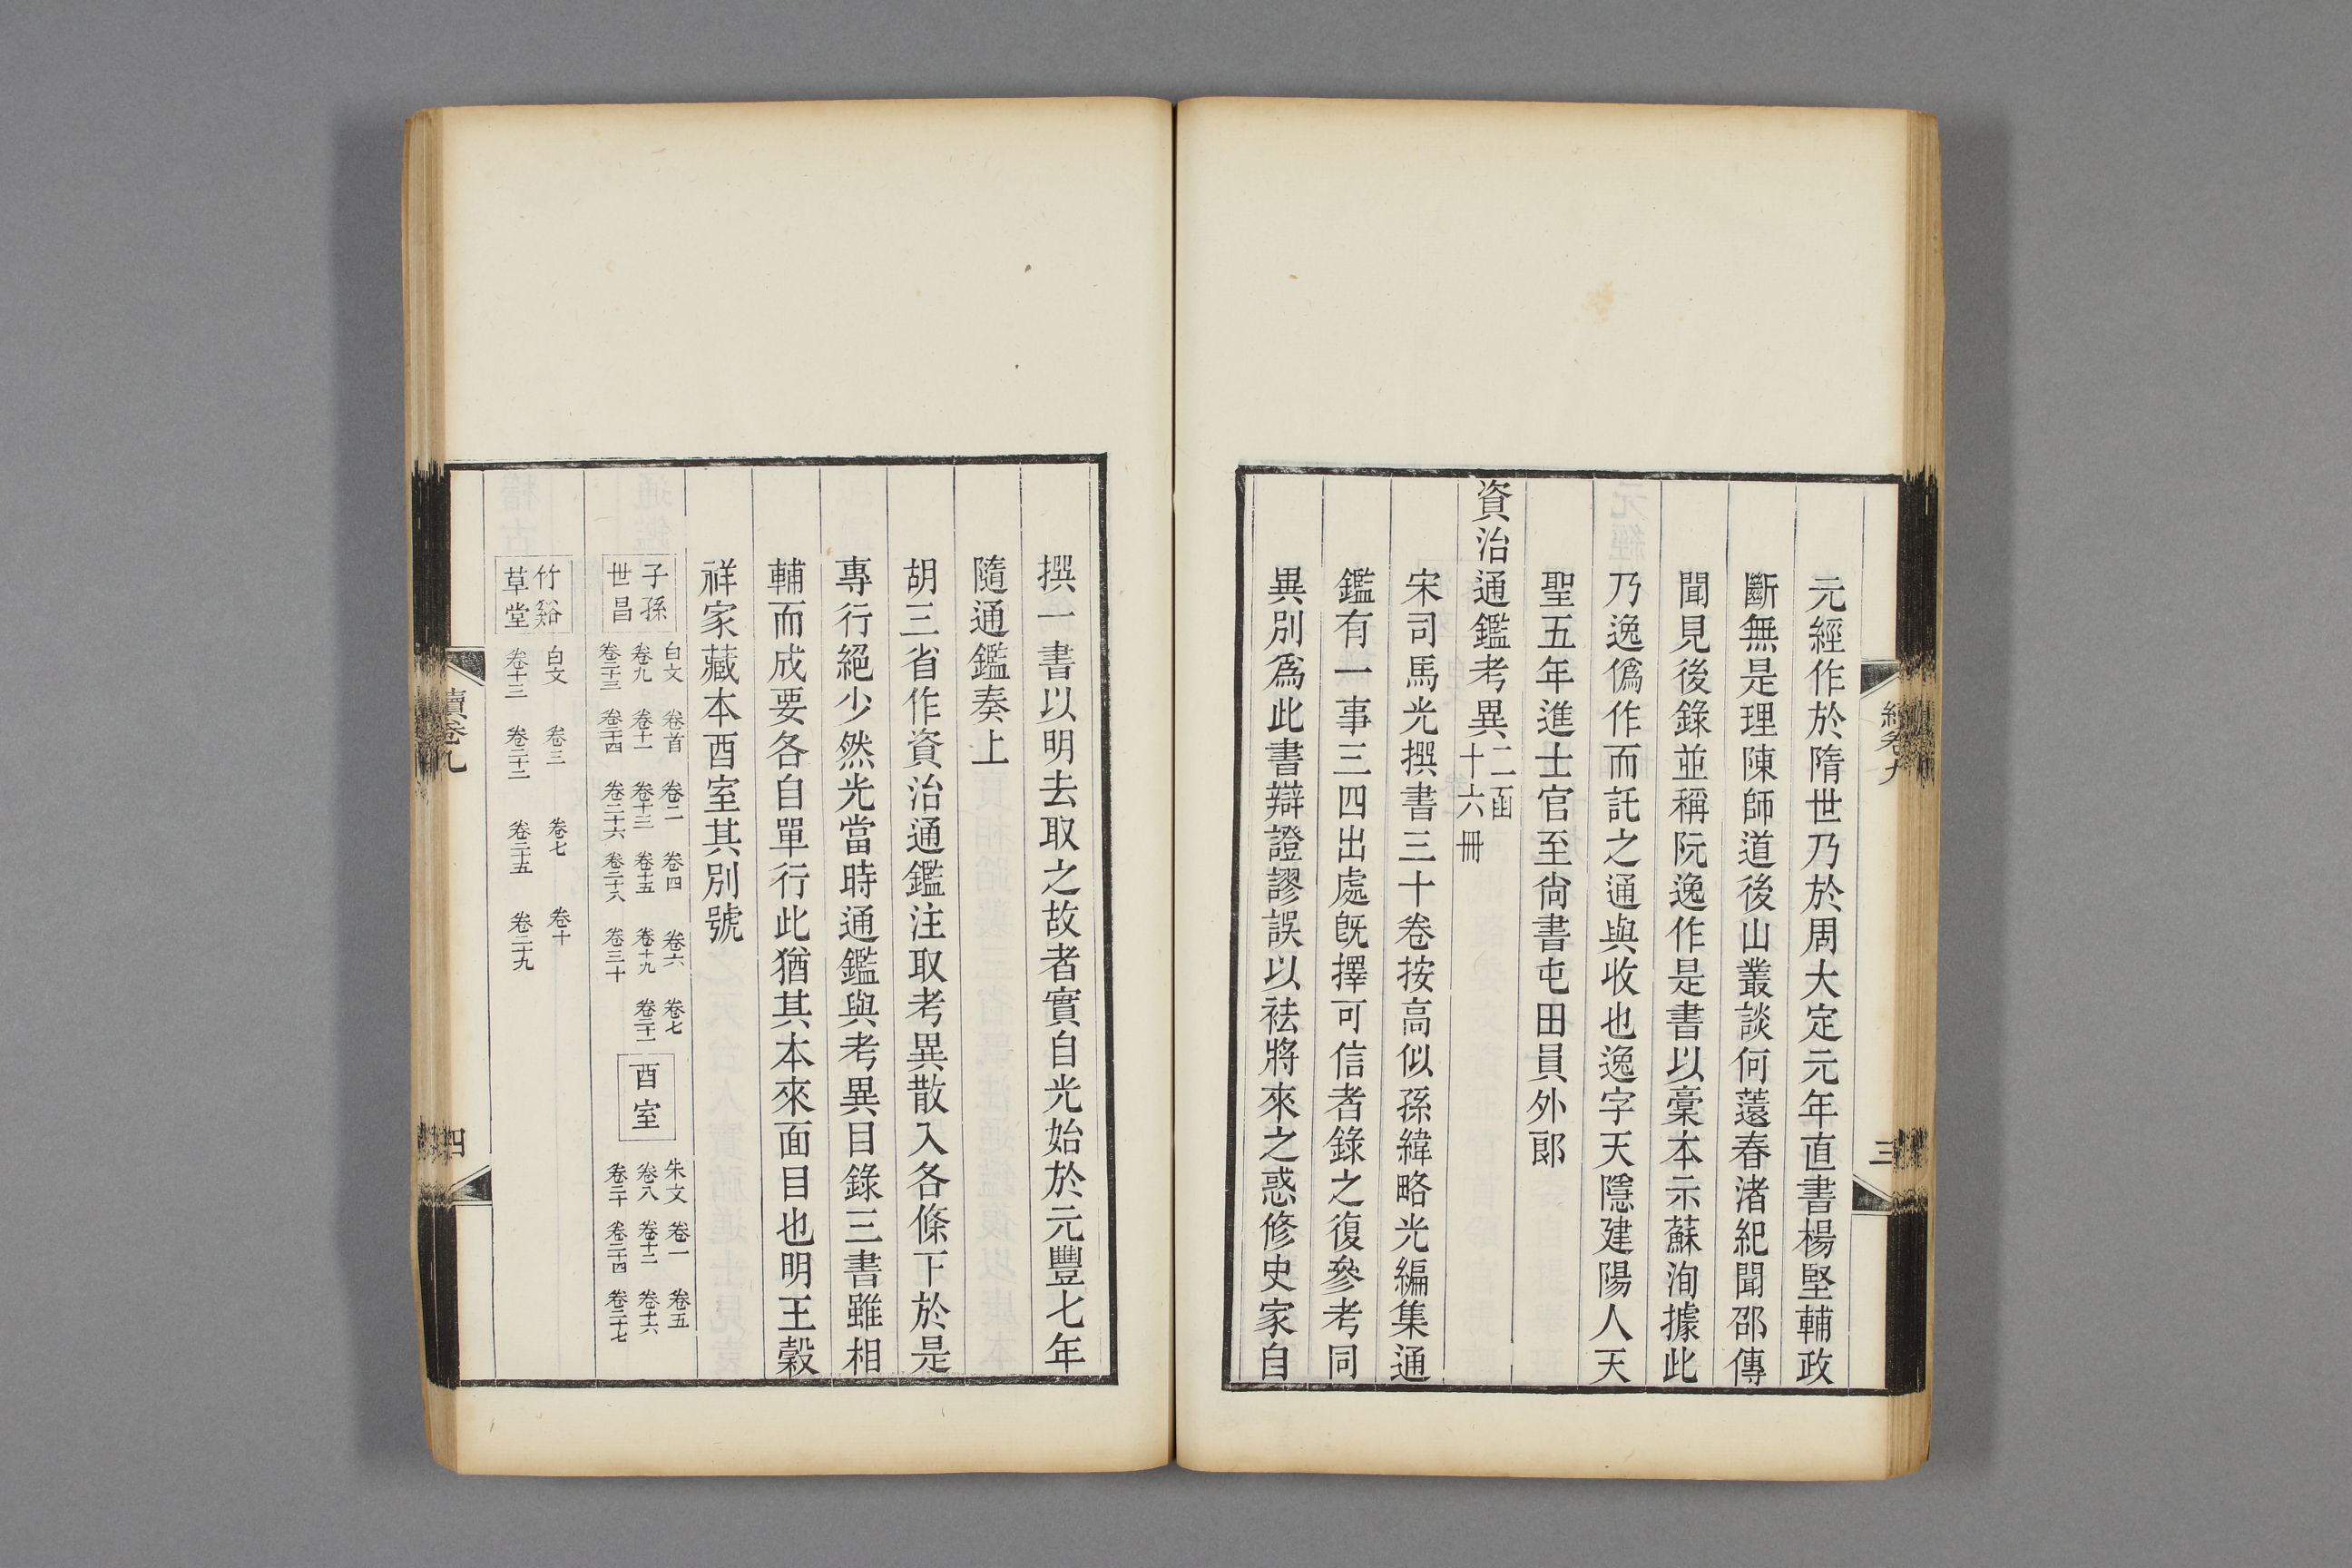 元經作於隋世乃於周大定元年直書楊堅輔政
斷無是理陳師道後山叢談何薳春渚紀聞邵傳
聞見後錄並稱阮逸作是書以稾本示蘇洵據此
乃逸僞作而託之通與收也逸字天隱建陽人天
聖五年進士官至尙書屯田員外郞
資治通鑑考異二函十六冊
宋司馬光撰書三十卷按高似孫緯略光編集通
鑑有一事三四出處旣擇可信者錄之復參考同
異別爲此書辯證謬誤以袪將來之惑修史家自
三
撰一書以明去取之故者實自光始於元豐七年
隨通鑑奏上
胡三省作資治通鑑注取考異散入各條下於是
專行絕少然光當時通鑑與考異目錄三書雖相
輔而成要各自單行此猶其本來面目也明王穀
祥家藏本酉室其別號
子孫世昌
白文 卷首 卷二 卷四 卷六 卷七
卷九 卷十一 卷十三 卷十五 卷十九 卷二十一
卷二十三 卷二十四 卷二十六 卷二十八 卷三十
酉室
朱文 卷一 卷五
卷八 卷十二 卷十六
卷二十 卷二十四 卷二十七
竹谿草堂
白文 卷三 卷七 卷十
卷十三 卷二十二 卷二十五 卷二十九
續卷九
四